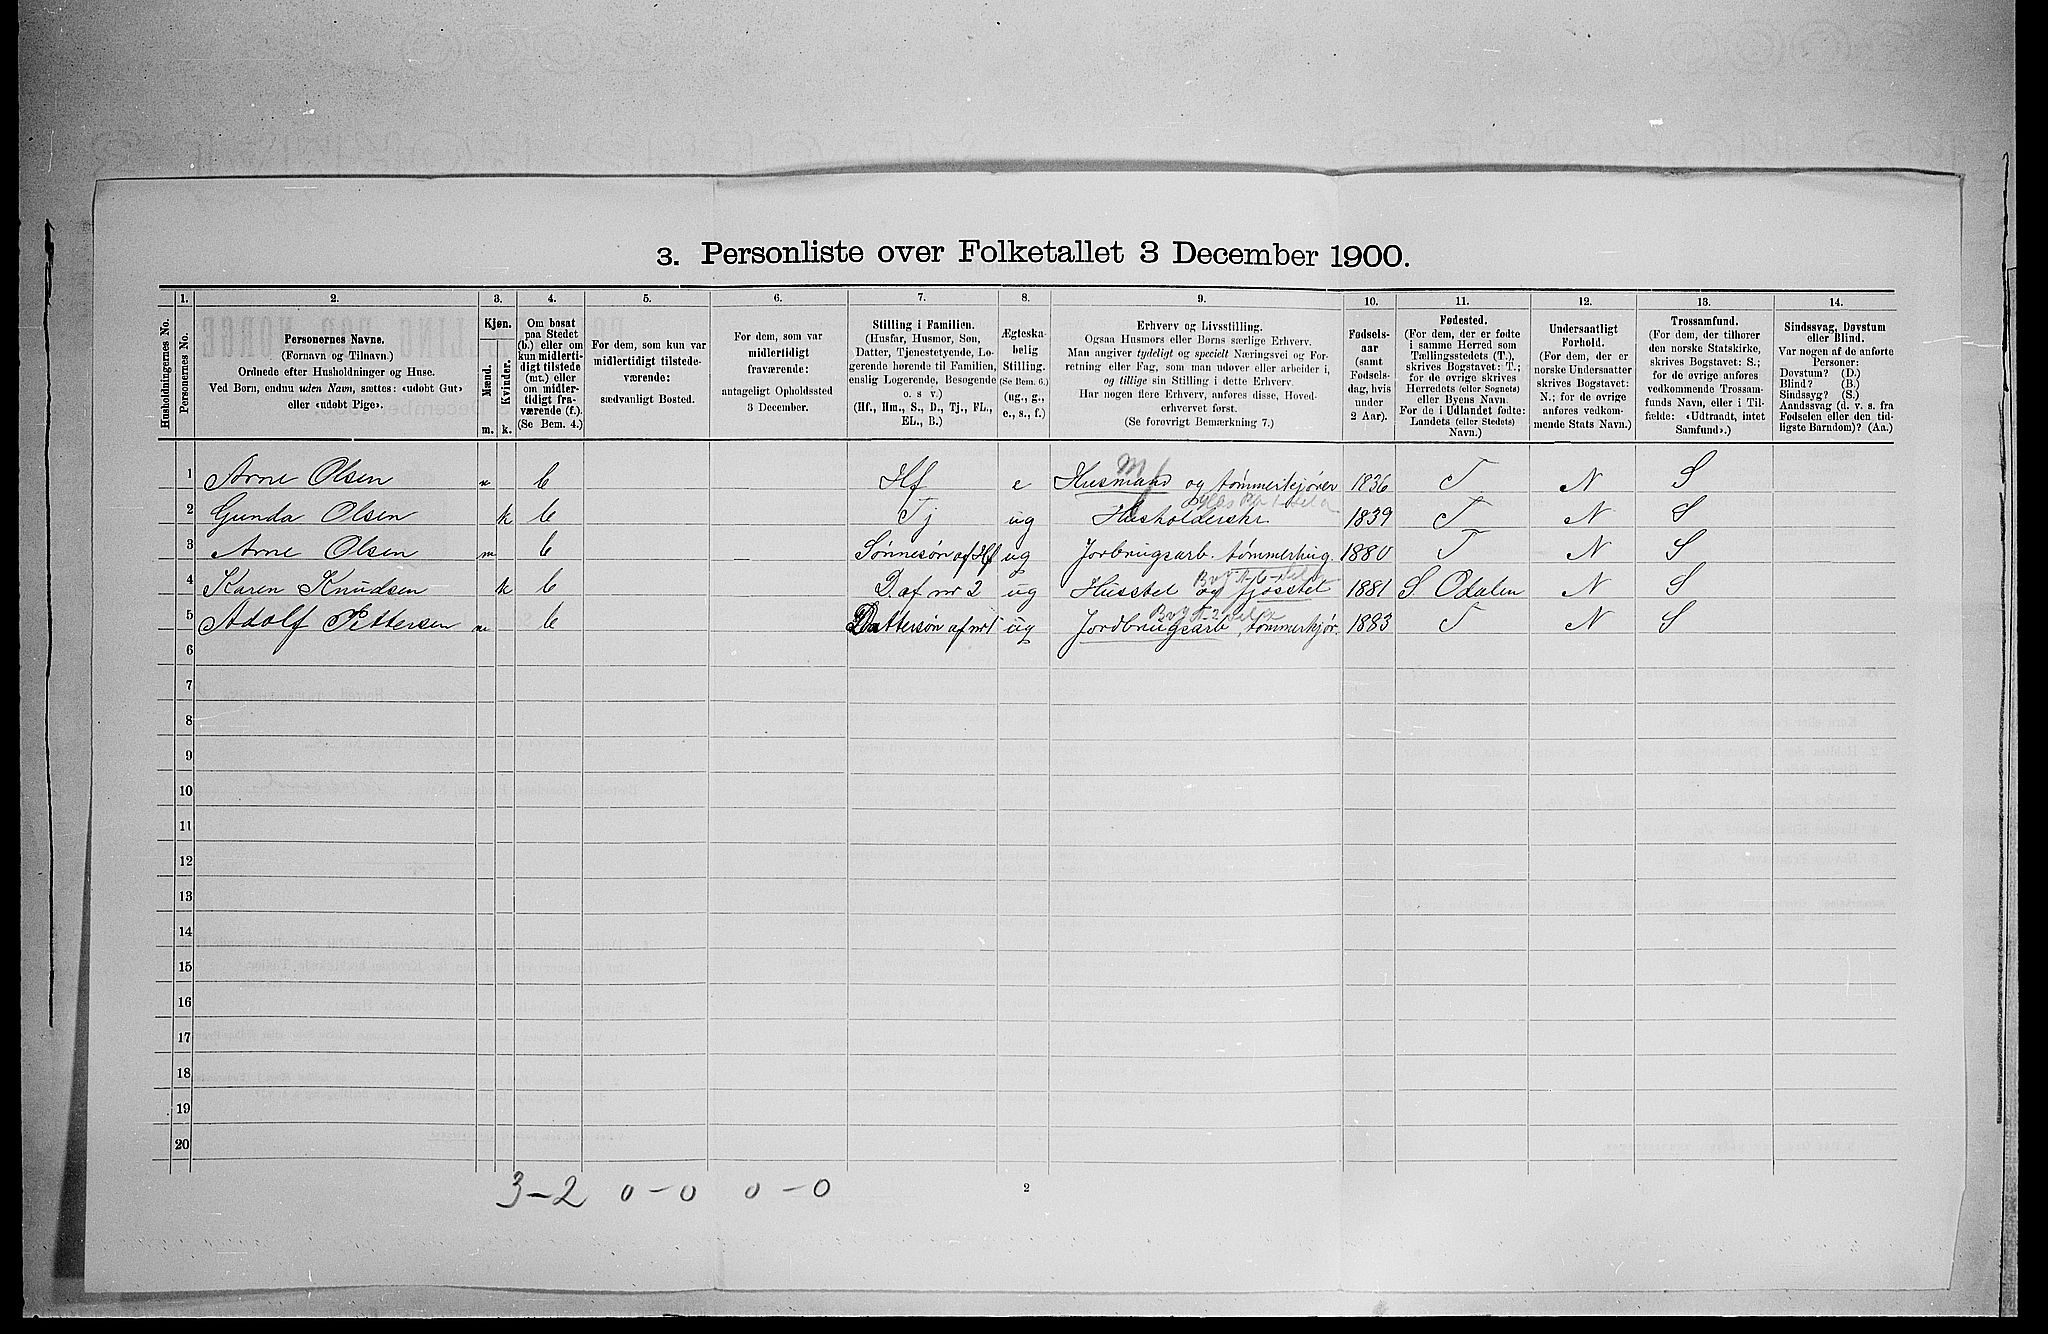 3. Personliste over Folketallet 3 December 1900.
1. 2. 3. 4. 5. 6. 7. 8. 9. 10. 11. 12. 13. 14.
Husholdningernes No.
Personernes No.
Personernes Navne.
(Fornavn og Tilnavn.)
Ordnede efter Husholdninger og Huse.
Ved Børn, endnu uden Navn, sættes: «udøbt Gut»
eller «udøbt Pige».
Kjøn.
Mænd.
Kvinder.
m. k.
Om bosat
paa Stedet
(b.) eller om
kun midlerti-
digt tilstede
(mt.) eller
om midler-
tidigt fra-
værende (f.).
(Se Bem. 4.)
For dem, som kun var
midlertidigt tilstede-
værende:
sædvanligt Bosted.
For dem, som var
midlertidigt
fraværende:
antageligt Opholdssted
3 December.
Stilling i Familien.
(Husfar, Husmor, Søn,
Datter, Tjenestetyende, Lo-
gerende hørende til Familien,
enslig Logerende, Besøgende
o. s v.)
(Hf., Hm., S., D., Tj., FL.,
EL., B.)
Ægteska-
belig
Stilling.
(Se Bem. 6.)
(ug., g.,
e., s., f.)
Erhverv og Livsstilling.
Ogsaa Husmors eller Børns særlige Erhverv.
Man angiver tydeligt og specielt Næringsvei og For-
retning eller Fag, som man udøver eller arbeider i,
og tillige sin Stilling i dette Erhverv.
Har nogen flere Erhverv, anføres disse, Hoved-
erhvervet først.
(Se forøvrigt Bemærkning 7.)
Fødsels-
aar
(samt
Fødsels-
dag, hvis
under
2 Aar).
Fødested.
(For dem, der er fødte
i samme Herred som
Tællingsstedets (T.),
skrives Bogstavet: T.;
for de øvrige skrives
Herredets (eller Sognets)
eller Byens Navn.
For de i Udlandet fødte:
Landets (eller Stedets)
Navn.)
Undersaatligt
Forhold.
(For dem, der er
norske Undersaatter
skrives Bogstavet:
N.; for de øvrige
anføres vedkom-
mende Stats Navn.)
Trossamfund.
(For dem, der tilhører
den norske Statskirke,
skrives Bogstavet: S.;
for de øvrige anføres
vedkommende Trossam-
funds Navn, eller i Til-
fælde: «Udtraadt, intet
Samfund».)
Sindssvag, Døvstum
eller Blind.
Var nogen af de anførte
Personer:
Døvstum? (D.)
Blind? (B.)
Sindssyg? (S.)
Aandssvag (d. v. s. fra
Fødselen eller den tid-
ligste Barndom)? (Aa.)
1 Arne Olsen m b Hf e Husmand og tømmerkjører 1836 T N S
2 Gunda Olsen k b Tj ug Husholderske 1839 T N S
3 Arne Olsen m b Sønnesøn af Hf ug Jorbrugsarb. tømmerhug. 1880 T N S
4 Karen Knudsen k b D. af nr 2 ug Husstel og fjøsstel 1881 S Odalen N S
5 Adolf Pettersen m b Dattersøn af nr 1 ug Jordbrugsarb, tømmerkjør. 1883 T N S
6
7
8
9
10
11
12
13
14
15
16
17
18
19
20
3-2 0-0 0-0
2